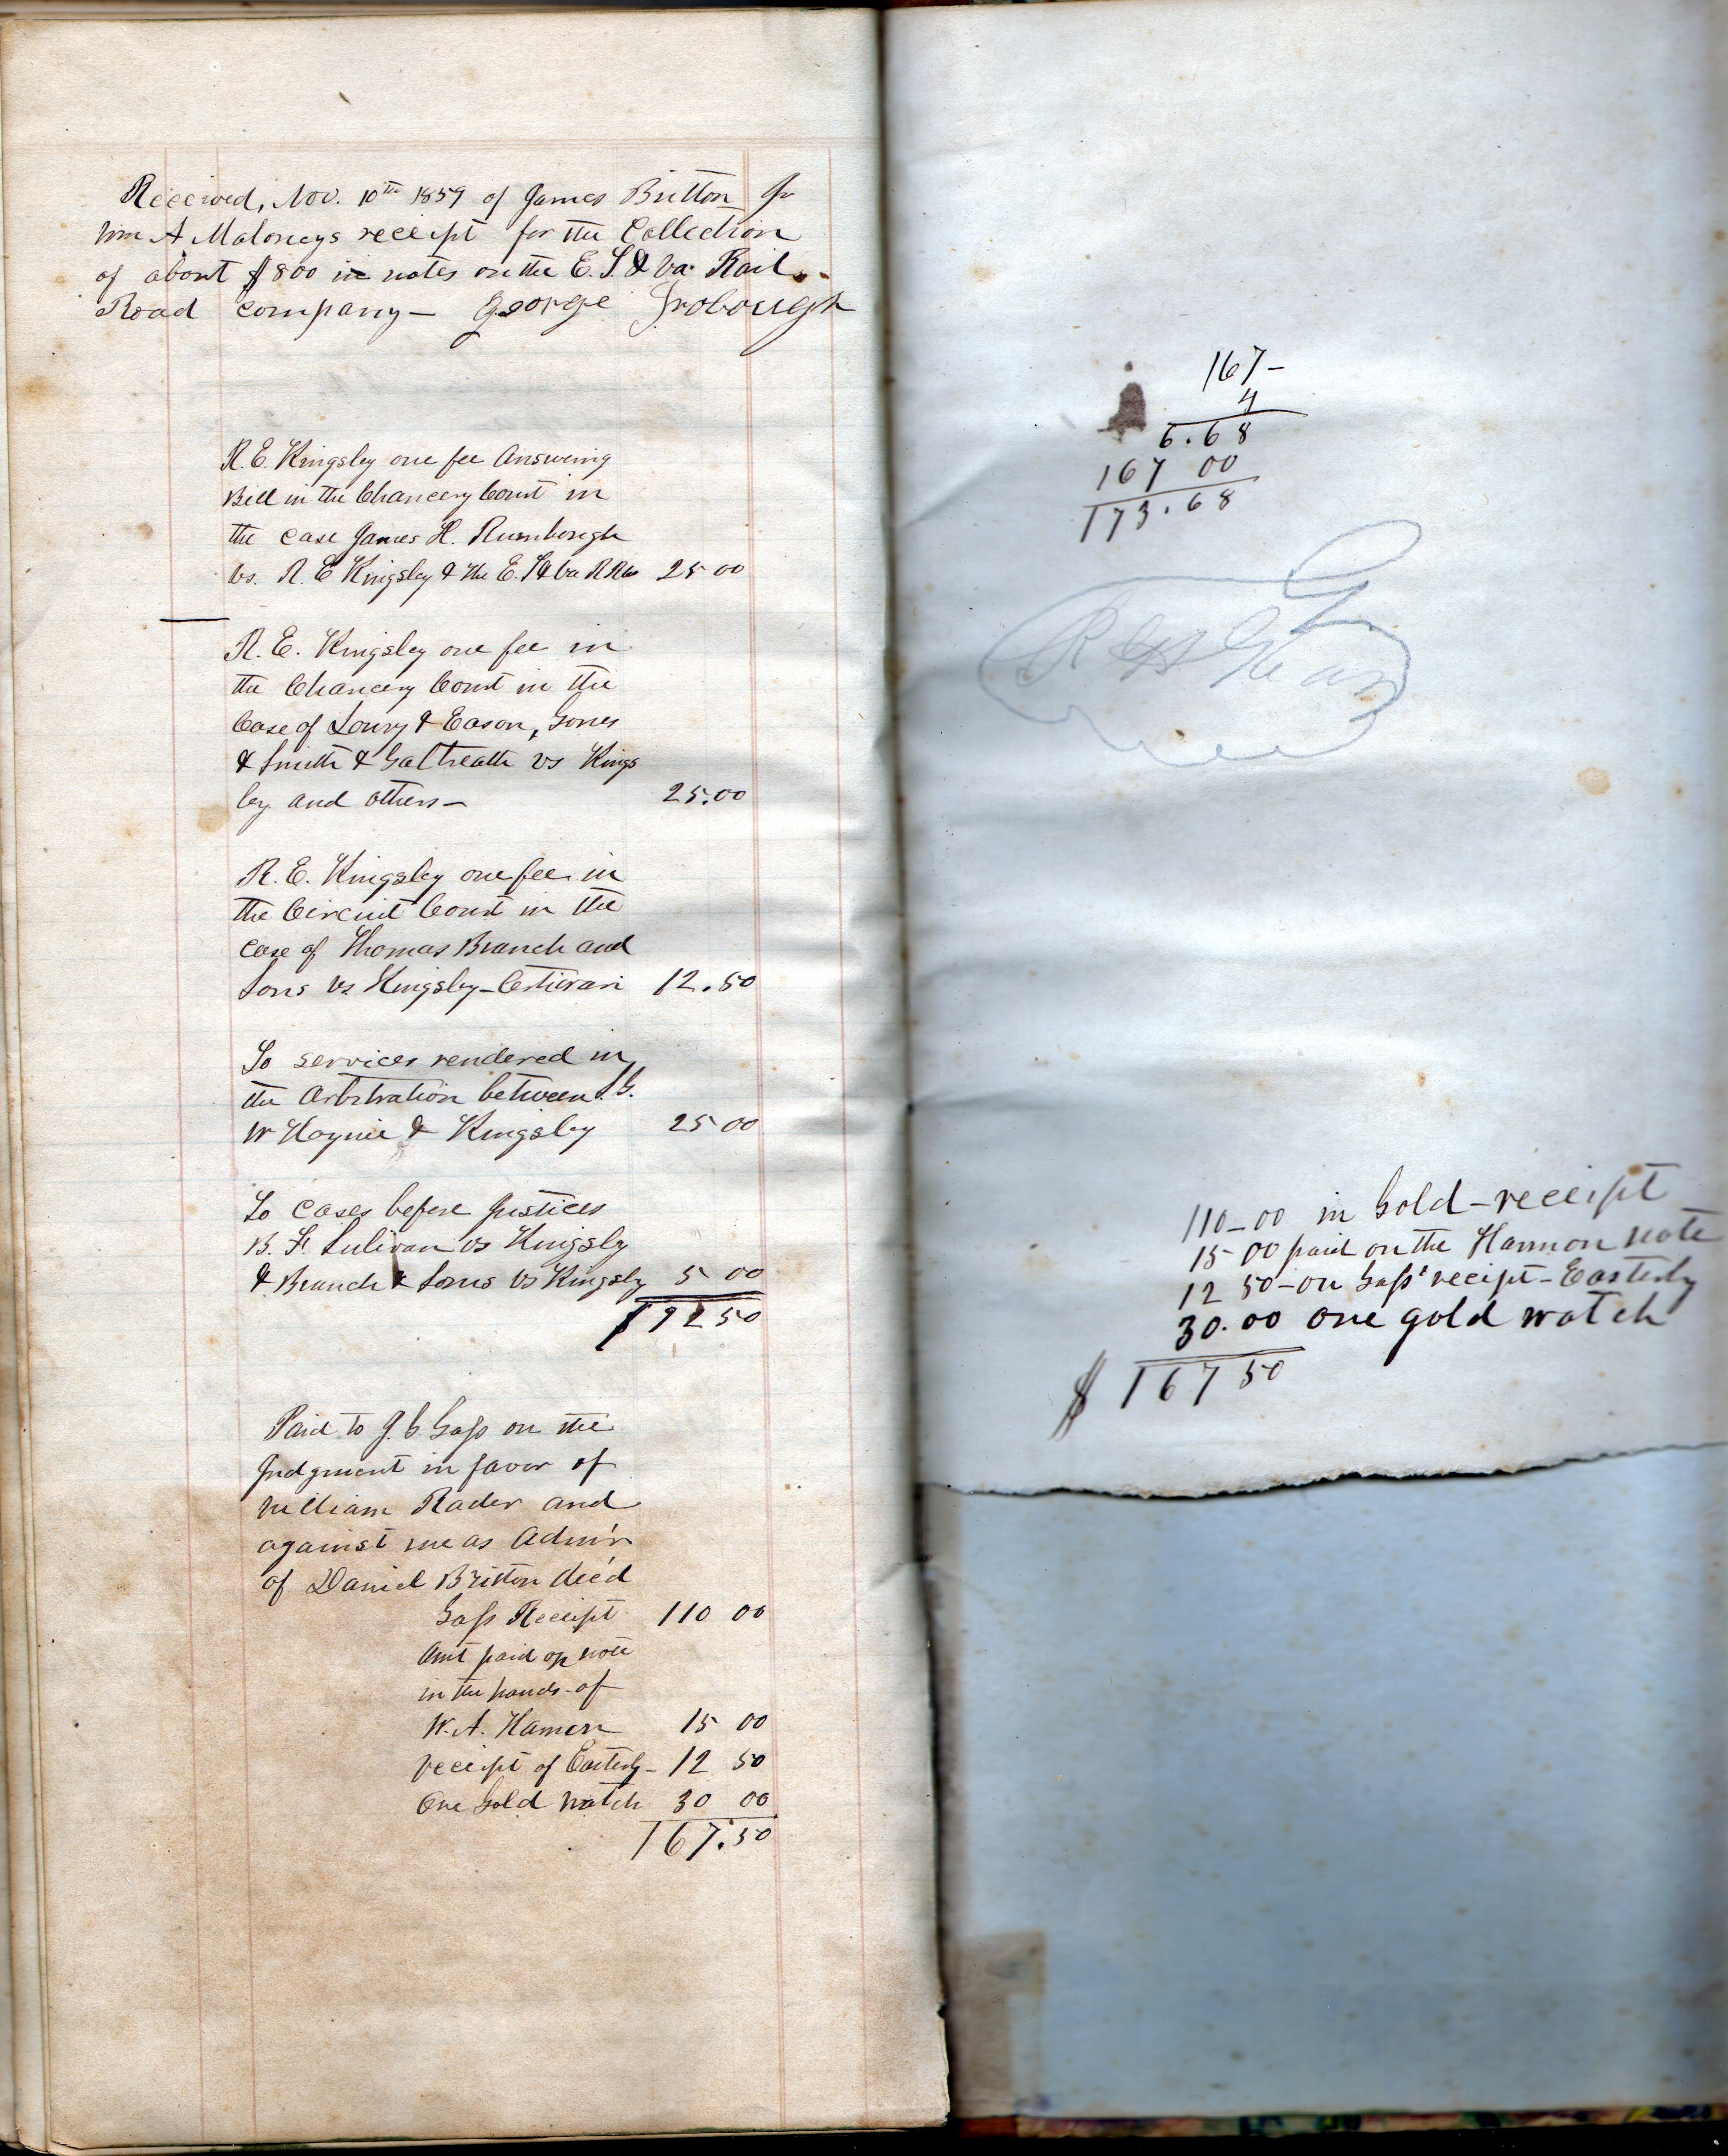 Received, Nov. 10th 1859 of James Britton Jr
Wm A Maloneys receipt for the Collection
of about $800 in notes on the E. T & Va. Rail
Road company— George Jrobough
R. E. Kingsley one fee Answering
Bill in the Chancery Court in
the case James H. Rumbough
vs. R. E Kingsley & the E. T & Va R R Co 25 00
R. E. Kingsley one fee in
the Chancery Court in the
Case of Loury & Eason, Jones
& Smith & Galbreath vs Kings
ley and others— 25.00
R. E. Kingsley one fee in
the Circuit Court in the
case of Thomas Branch and
Sons vs Kingsley—Certiorari 12.50
To services rendered in
the Arbitration between
W Haynie & Kingsley 25 00
To cases before Justices
B. F. Sulivan vs Kingsley
& Branch & Sons vs Kingsley 5 00
$92 50
Paid to J. C. Gass on the
Judgment in favor of
William Rader and
against me as Adm'r
of Daniel Britton dec'd
Gass Receipt 110 00
Amt paid on note
in the hands of
W. A. Hamon 15 00
receipt of Easterly— 12 50
One Gold Watch 30 00
167.50
167—
4
6.68
167 00
173.68
110—00 in Gold—receipt
15 00 paid on the Harmon note
12 50—on Gass' receipt—Easterly
30.00 one gold watch
$ 167 50